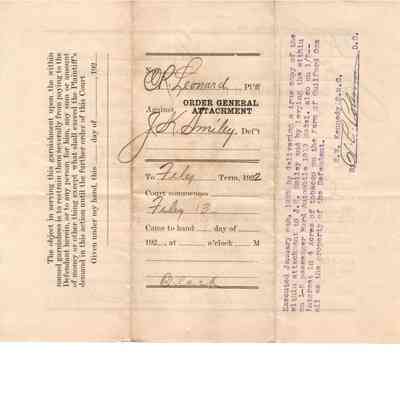 The object in serving this garnishment upon the within
named garnishee is to restrain them severally from paying to the
Defendant herein, or to any person for him, any sum or amount
of money or other thing except what shall exceed the Plaintiff's
demand in this action until the further order of this Court.
Given under my hand, this day of , 192
No.
O.R. Leonard, Pl'ff
Against ORDER GENERAL
ATTACHMENT
J. K. Smiley, Def't
To Feby Term, 1922
Court commences
Feby 13
Came to hand day of
192 , at o'clock M
Clerk
Executed January , by delivering a true copy of the
within attachment to J.K. Smiley and by levying the within
on 1-5 passenger Ford Automobile 1919 Model, also on 1/2
interest in 4 acres of tobacco on the Farm of Guilford Cox
all as the property of the Defendant.
Kennedy S.N.C.
By D.S.